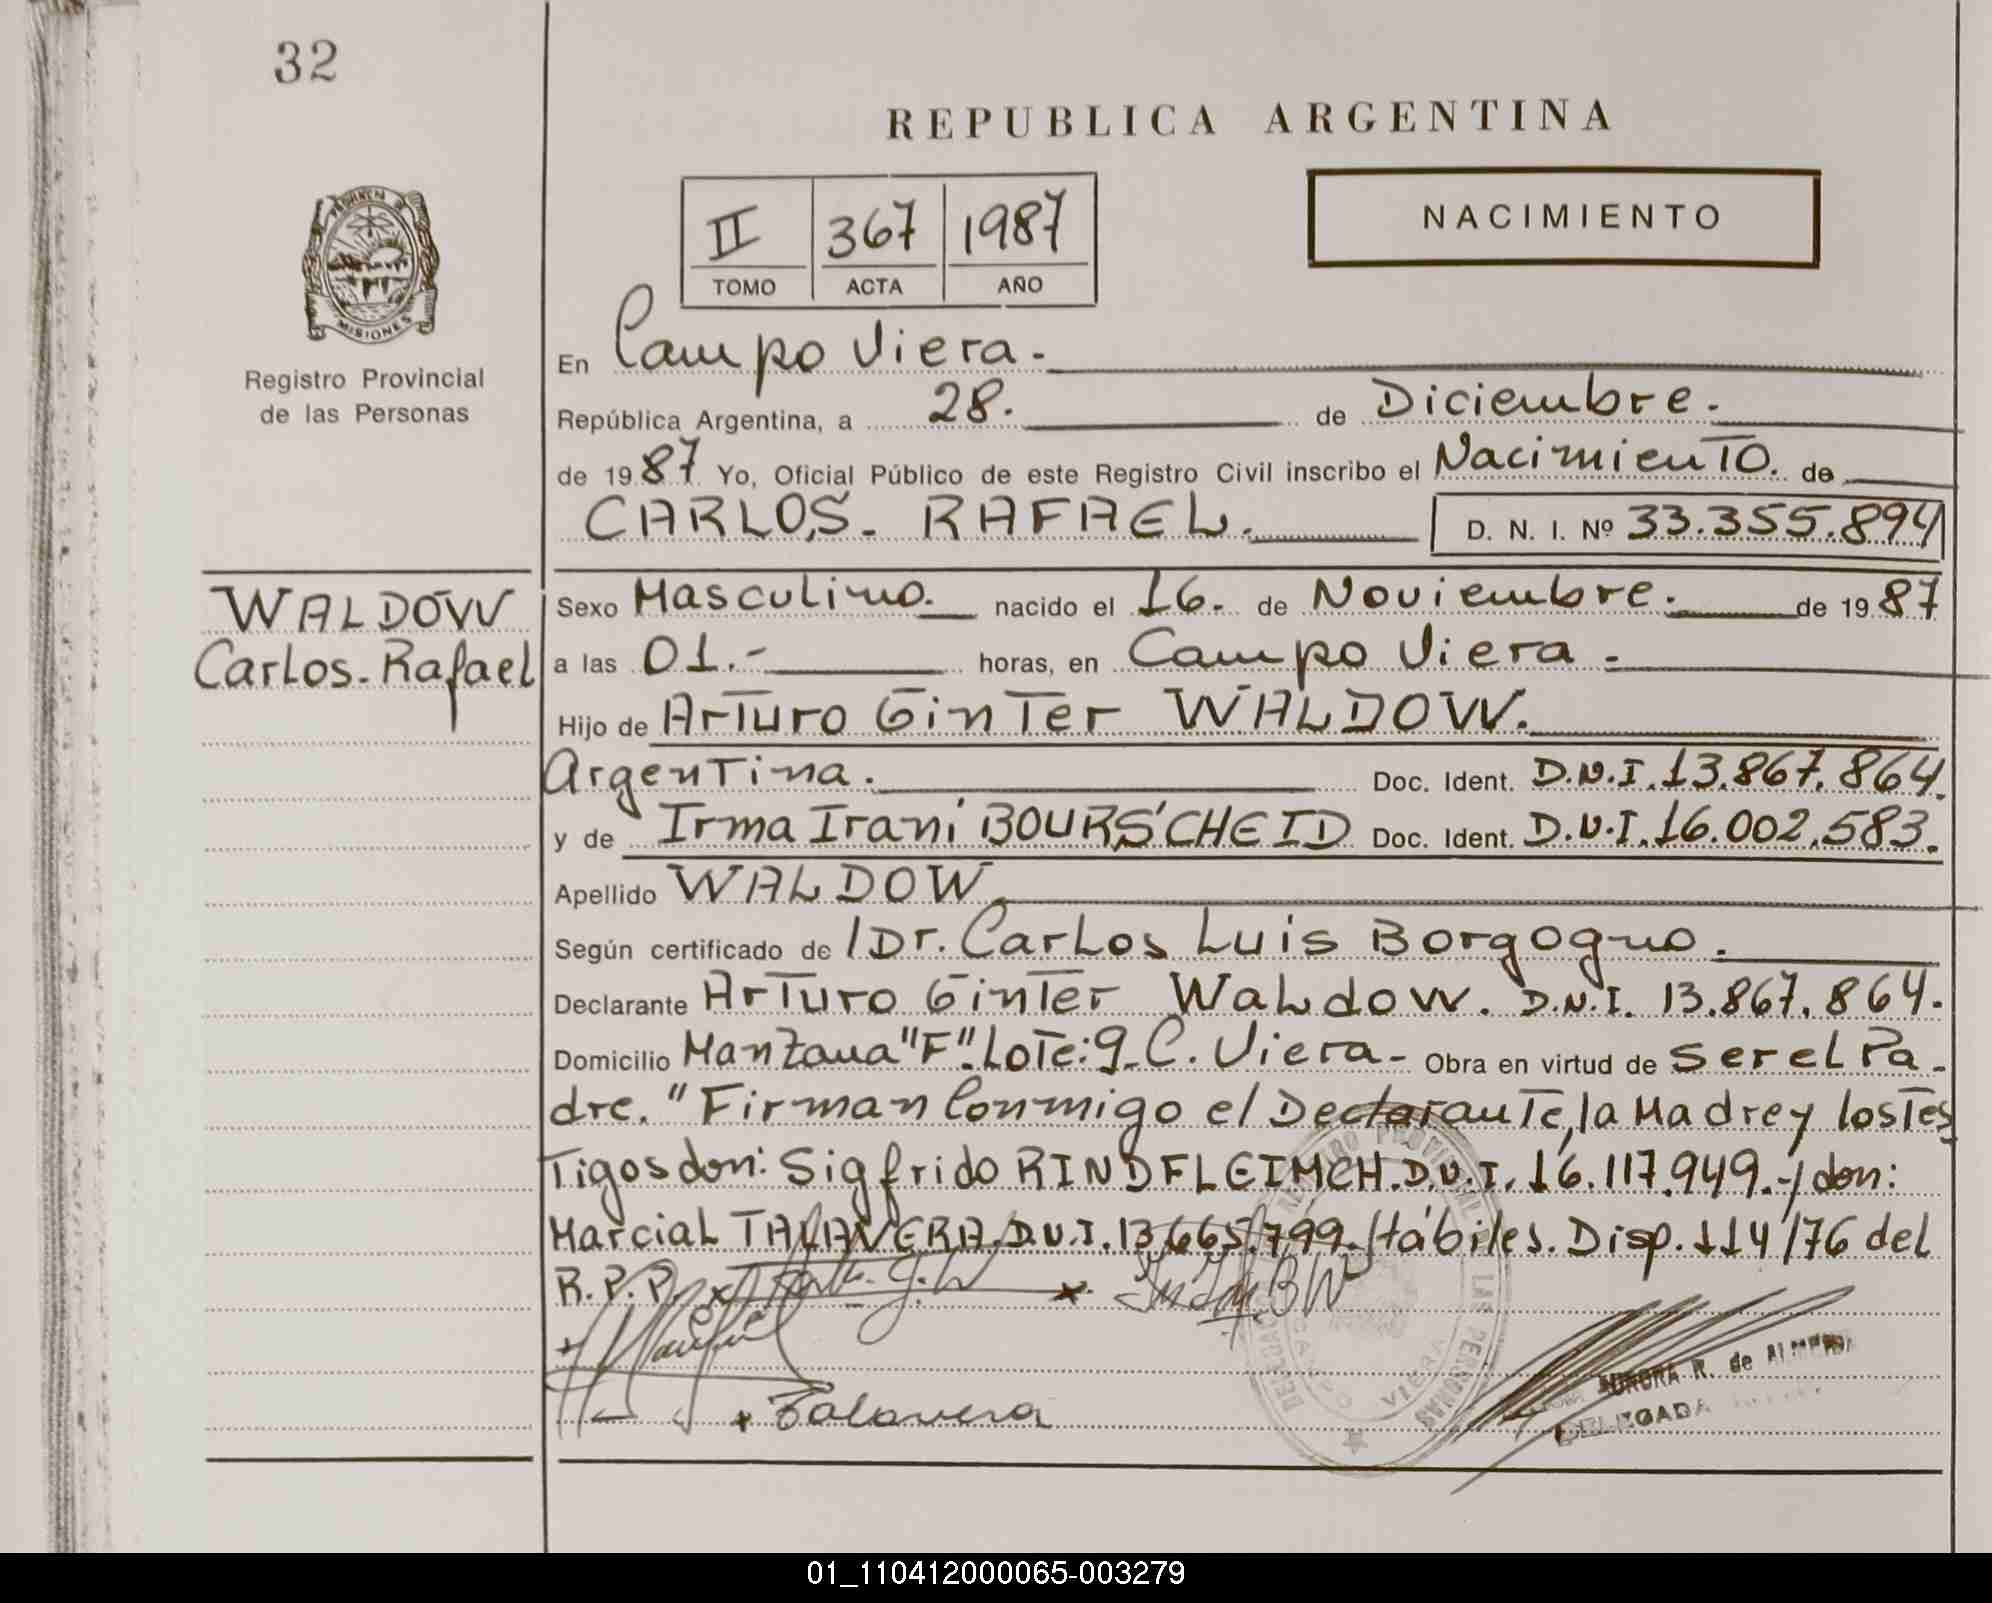 32
REPUBLICA ARGENTINA
II 367 1987
TOMO ACTA AÑO
NACIMIENTO
PROVINCIA DE
MISIONES
Registro Provincial
de las Personas
En Campo Viera.-
República Argentina, a 28. de Diciembre.
de 1987 Yo, Oficial Público de este Registro Civil inscribo el Nacimiento. de
CARLOS - RAFAEL. D. N. I. Nº 33.355.894
WALDOW
Carlos-Rafael
Sexo Masculino. nacido el 16. de Noviembre. de 1987
a las 01.- horas, en Campo Viera.
Hijo de Arturo Ginter WALDOW.
Argentina. Doc. Ident. D.N.I. 13.867.864.
y de Irma Irani BOURSCHEID Doc. Ident. D.N.I. 16.002.583.
Apellido WALDOW
Según certificado de / Dr. Carlos Luis Borgogno.
Declarante Arturo Ginter Waldow. D.N.I. 13.867.864.
Domicilio Manzana "F". Lote: 9- C. Viera- Obra en virtud de ser el Pa-
dre. "Firman Conmigo el Declarante, la Madre y los Tes
Tigos don: Sigfrido RINDFLEIMCH. D.N.I. 16.117.949.-y don:
Marcial TALAVERA. D.N.I. 13.665.799. Hábiles. Disp. 114/76 del
R.P.P.
Talavera
CAMPO VIERA
R. de ALMEIDA
DELEGADA
01_110412000065-003279